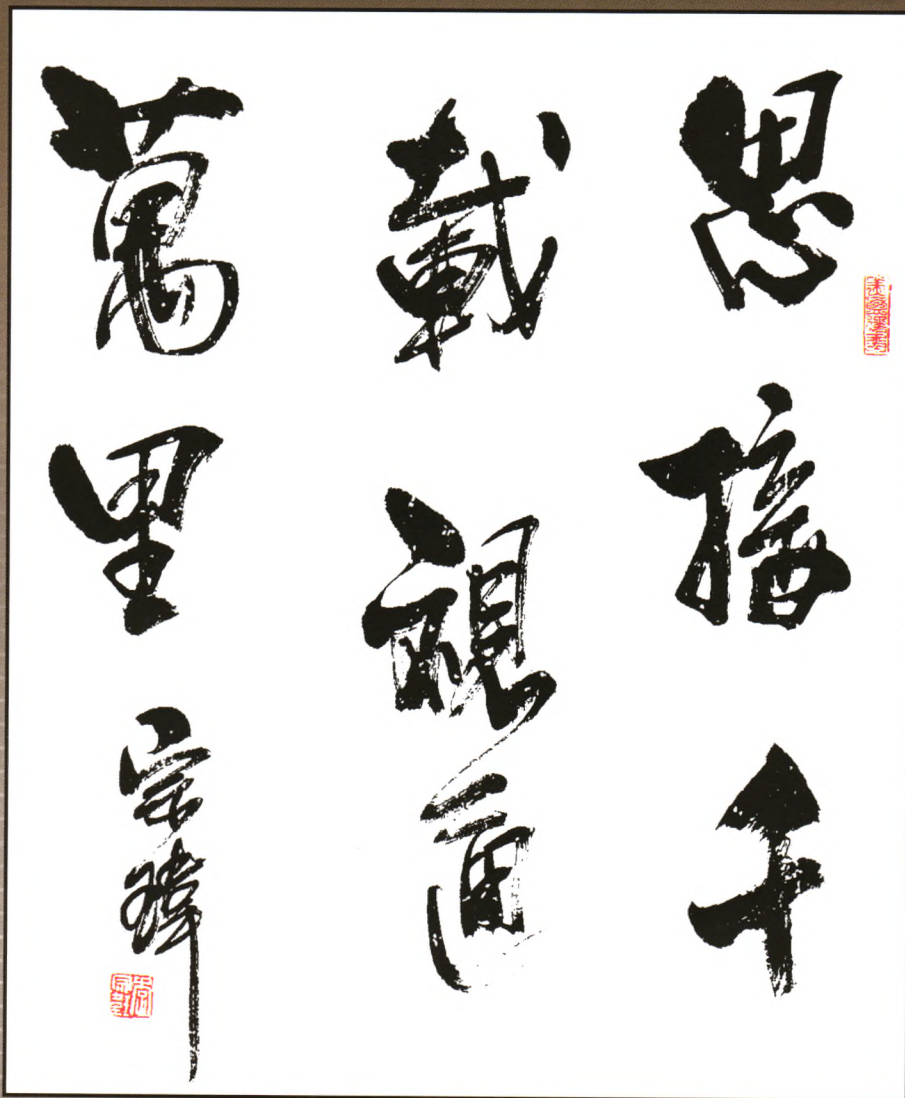 思接千
載視通
萬里
宗瑋